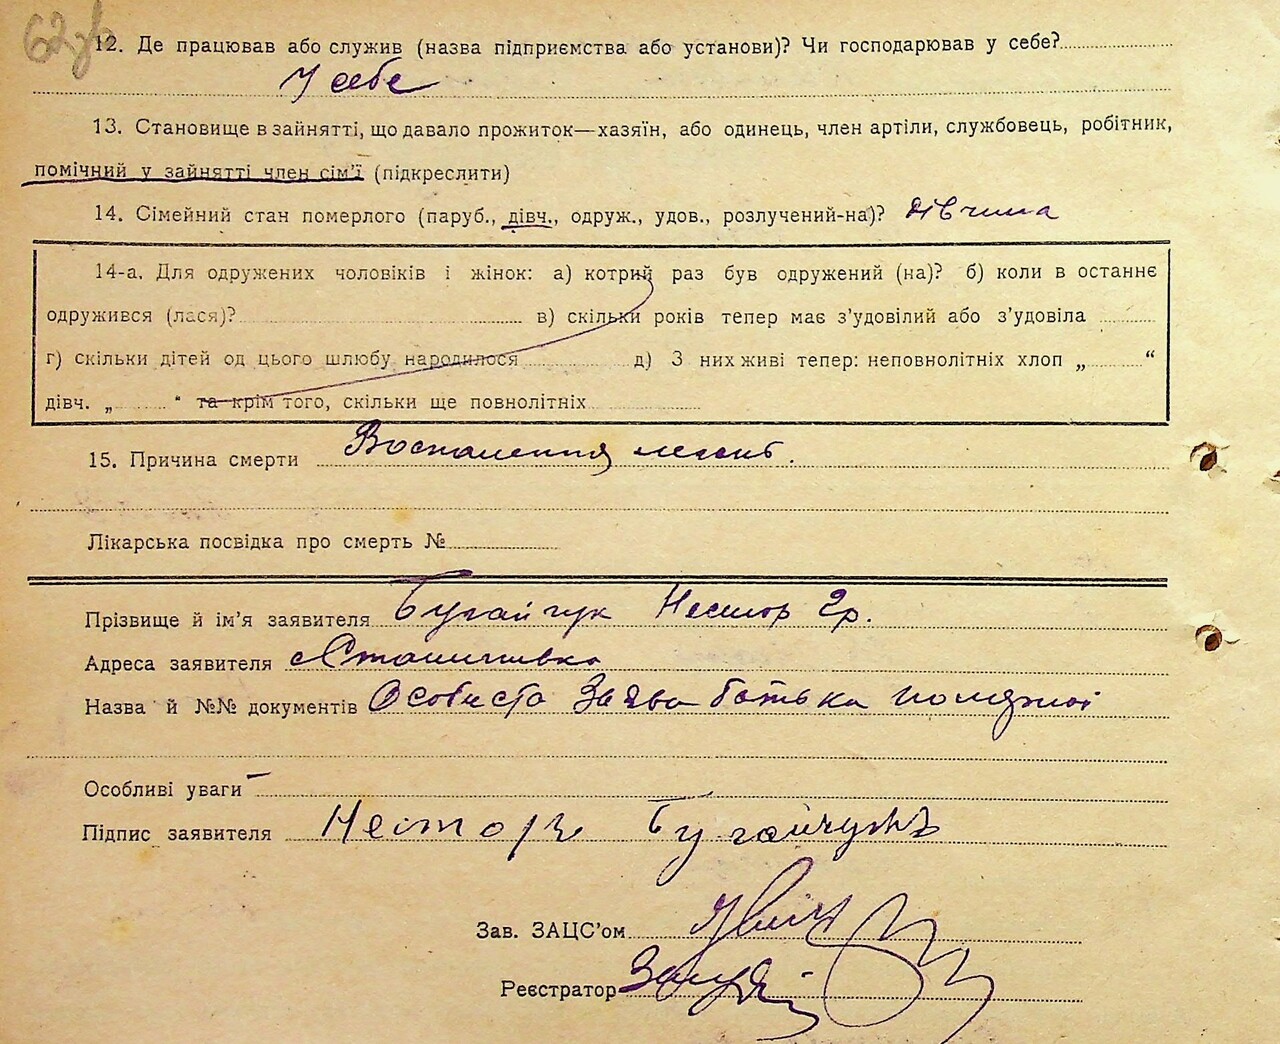 62зв
12. Де працював або служив (назва підприємства або установи)? Чи господарював у себе?
У себе
13. Становище в зайнятті, що давало прожиток—хазяїн, або одинець, член артіли, службовець, робітник,
помічний у зайнятті член сім'ї (підкреслити)
14. Сімейний стан померлого (паруб., дівч., одруж., удов., розлучений-на)? дівчина
14-а. Для одружених чоловіків і жінок: а) котрий раз був одружений (на)? б) коли в останнє
одружився (лася)? в) скільки років тепер має з'удовілий або з'удовіла
г) скільки дітей од цього шлюбу народилося д) З них живі тепер: неповнолітніх хлоп „ “
дівч. „ “ та крім того, скільки ще повнолітніх
15. Причина смерти Воспалення легень.
Лікарська посвідка про смерть №
Прізвище й ім'я заявителя Бугайчук Нестор Гр.
Адреса заявителя с Станишивка
Назва й №№ документів Особиста Заява батька померлої
Особливі уваги –
Підпис заявителя Несторъ Бугайчукъ
Зав. ЗАЦС'ом
Реєстратор